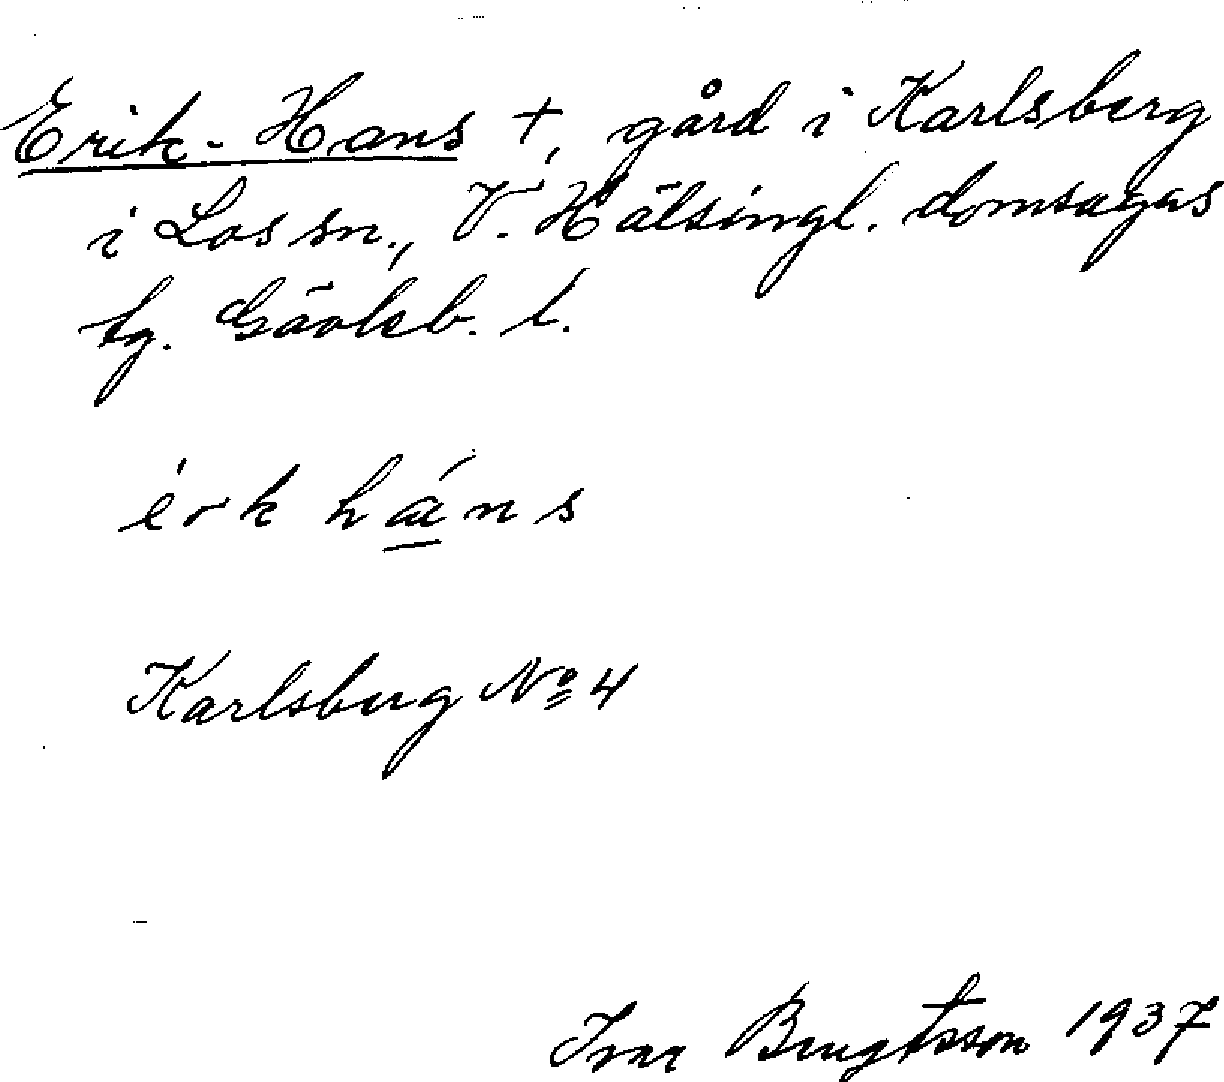 Erik-Hans +, gård i Karlsberg
i Los sn., V. Hälsingl. domsagas
tg. Gävleb. l.
érk háns
Karlsberg No 4
Ivar Bengtsson 1937